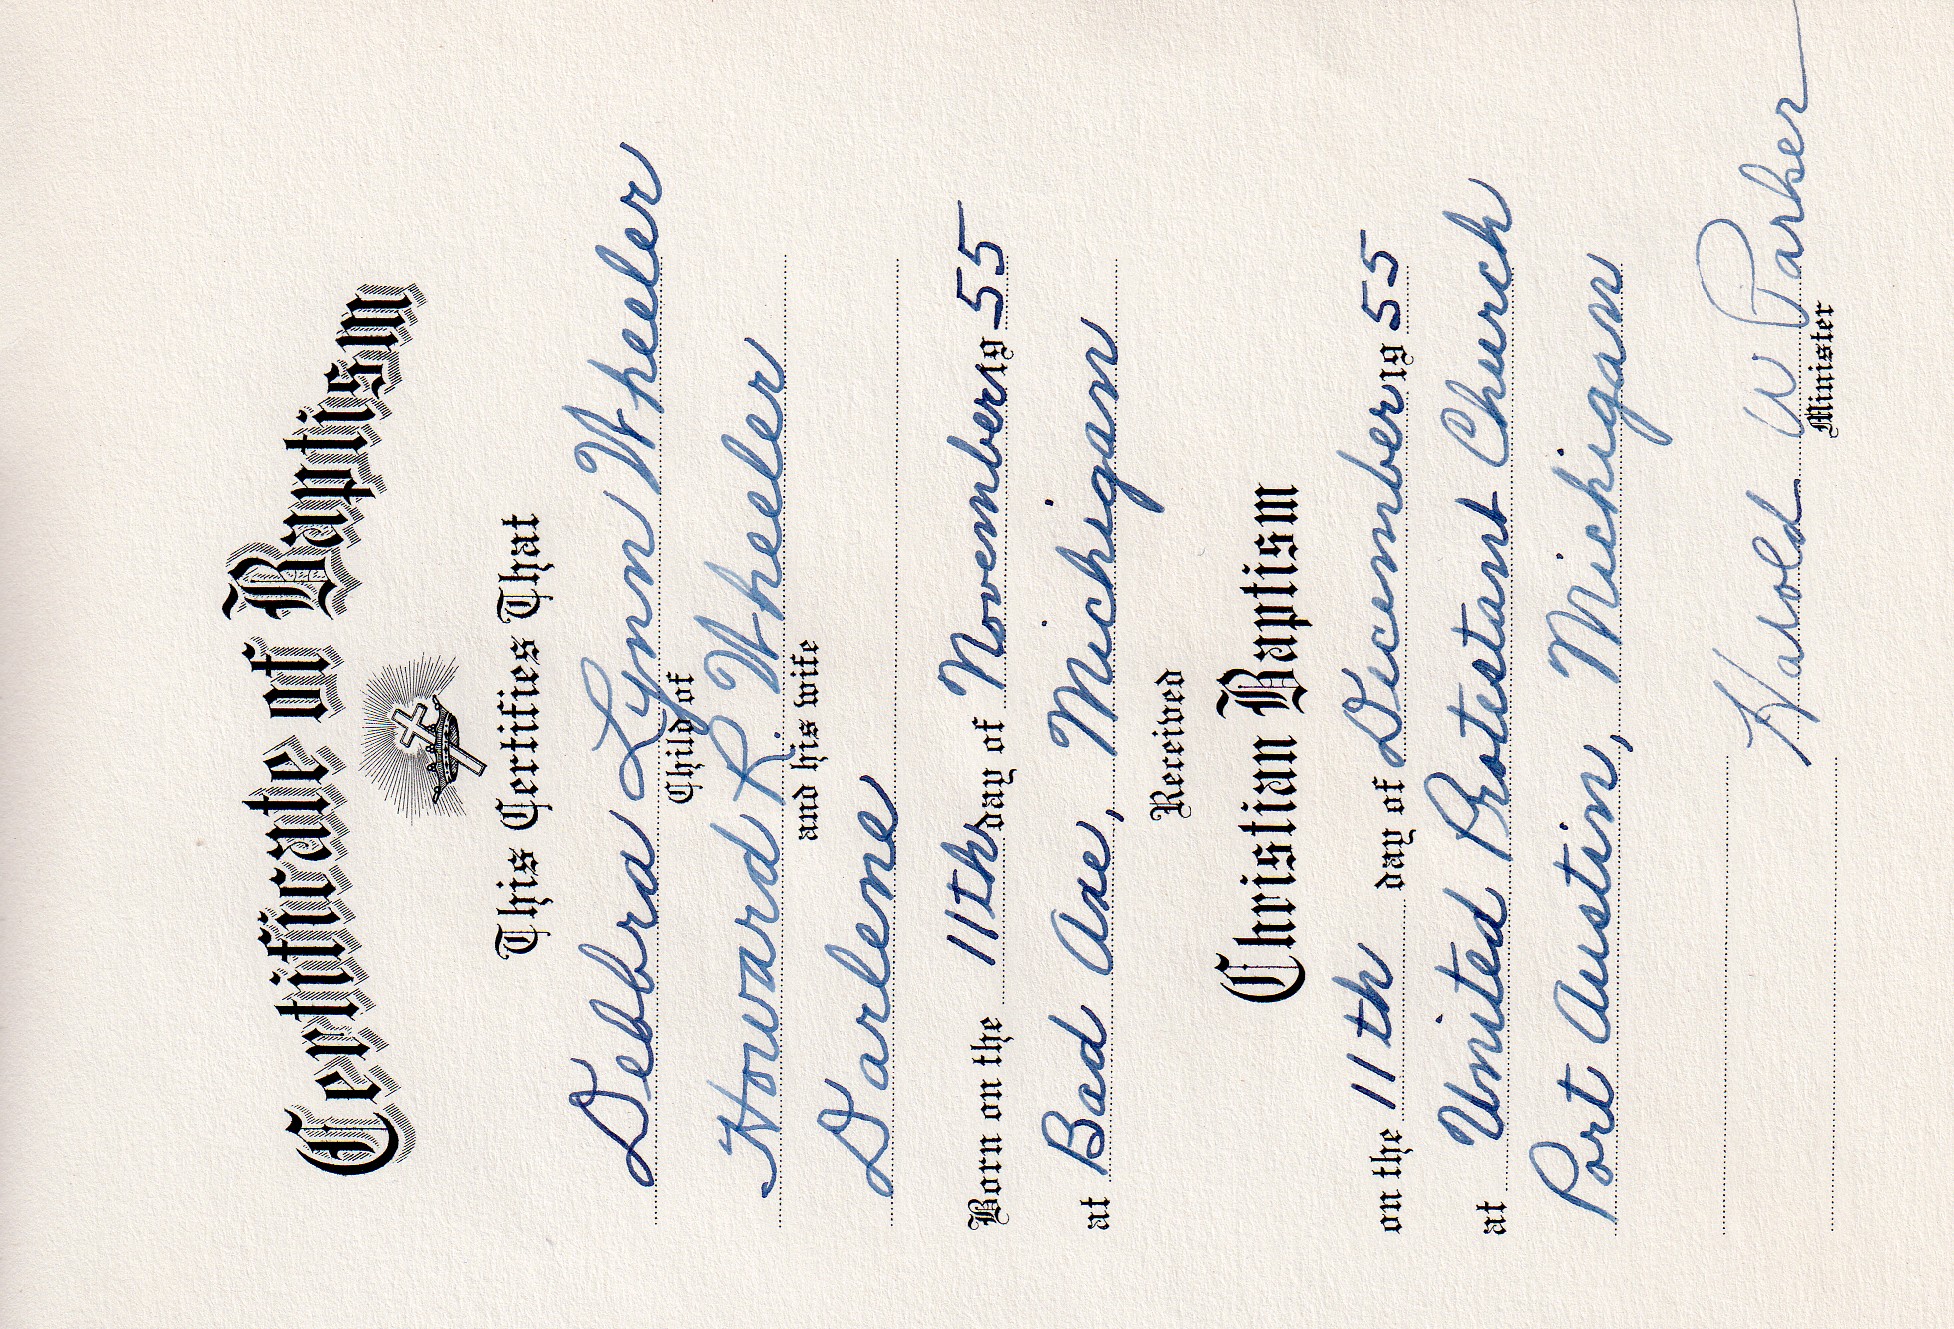 Certificate of Baptism
This Certifies That
Debbra Lynn Wheeler
Child of
Howard R. Wheeler
and his wife
Darlene
Born on the 11th day of November 19 55
at Bad Axe, Michigan
Received
Christian Baptism
on the 11th day of December 19 55
at United Protestant Church
Port Austin, Michigan
Harold W Parker
Minister